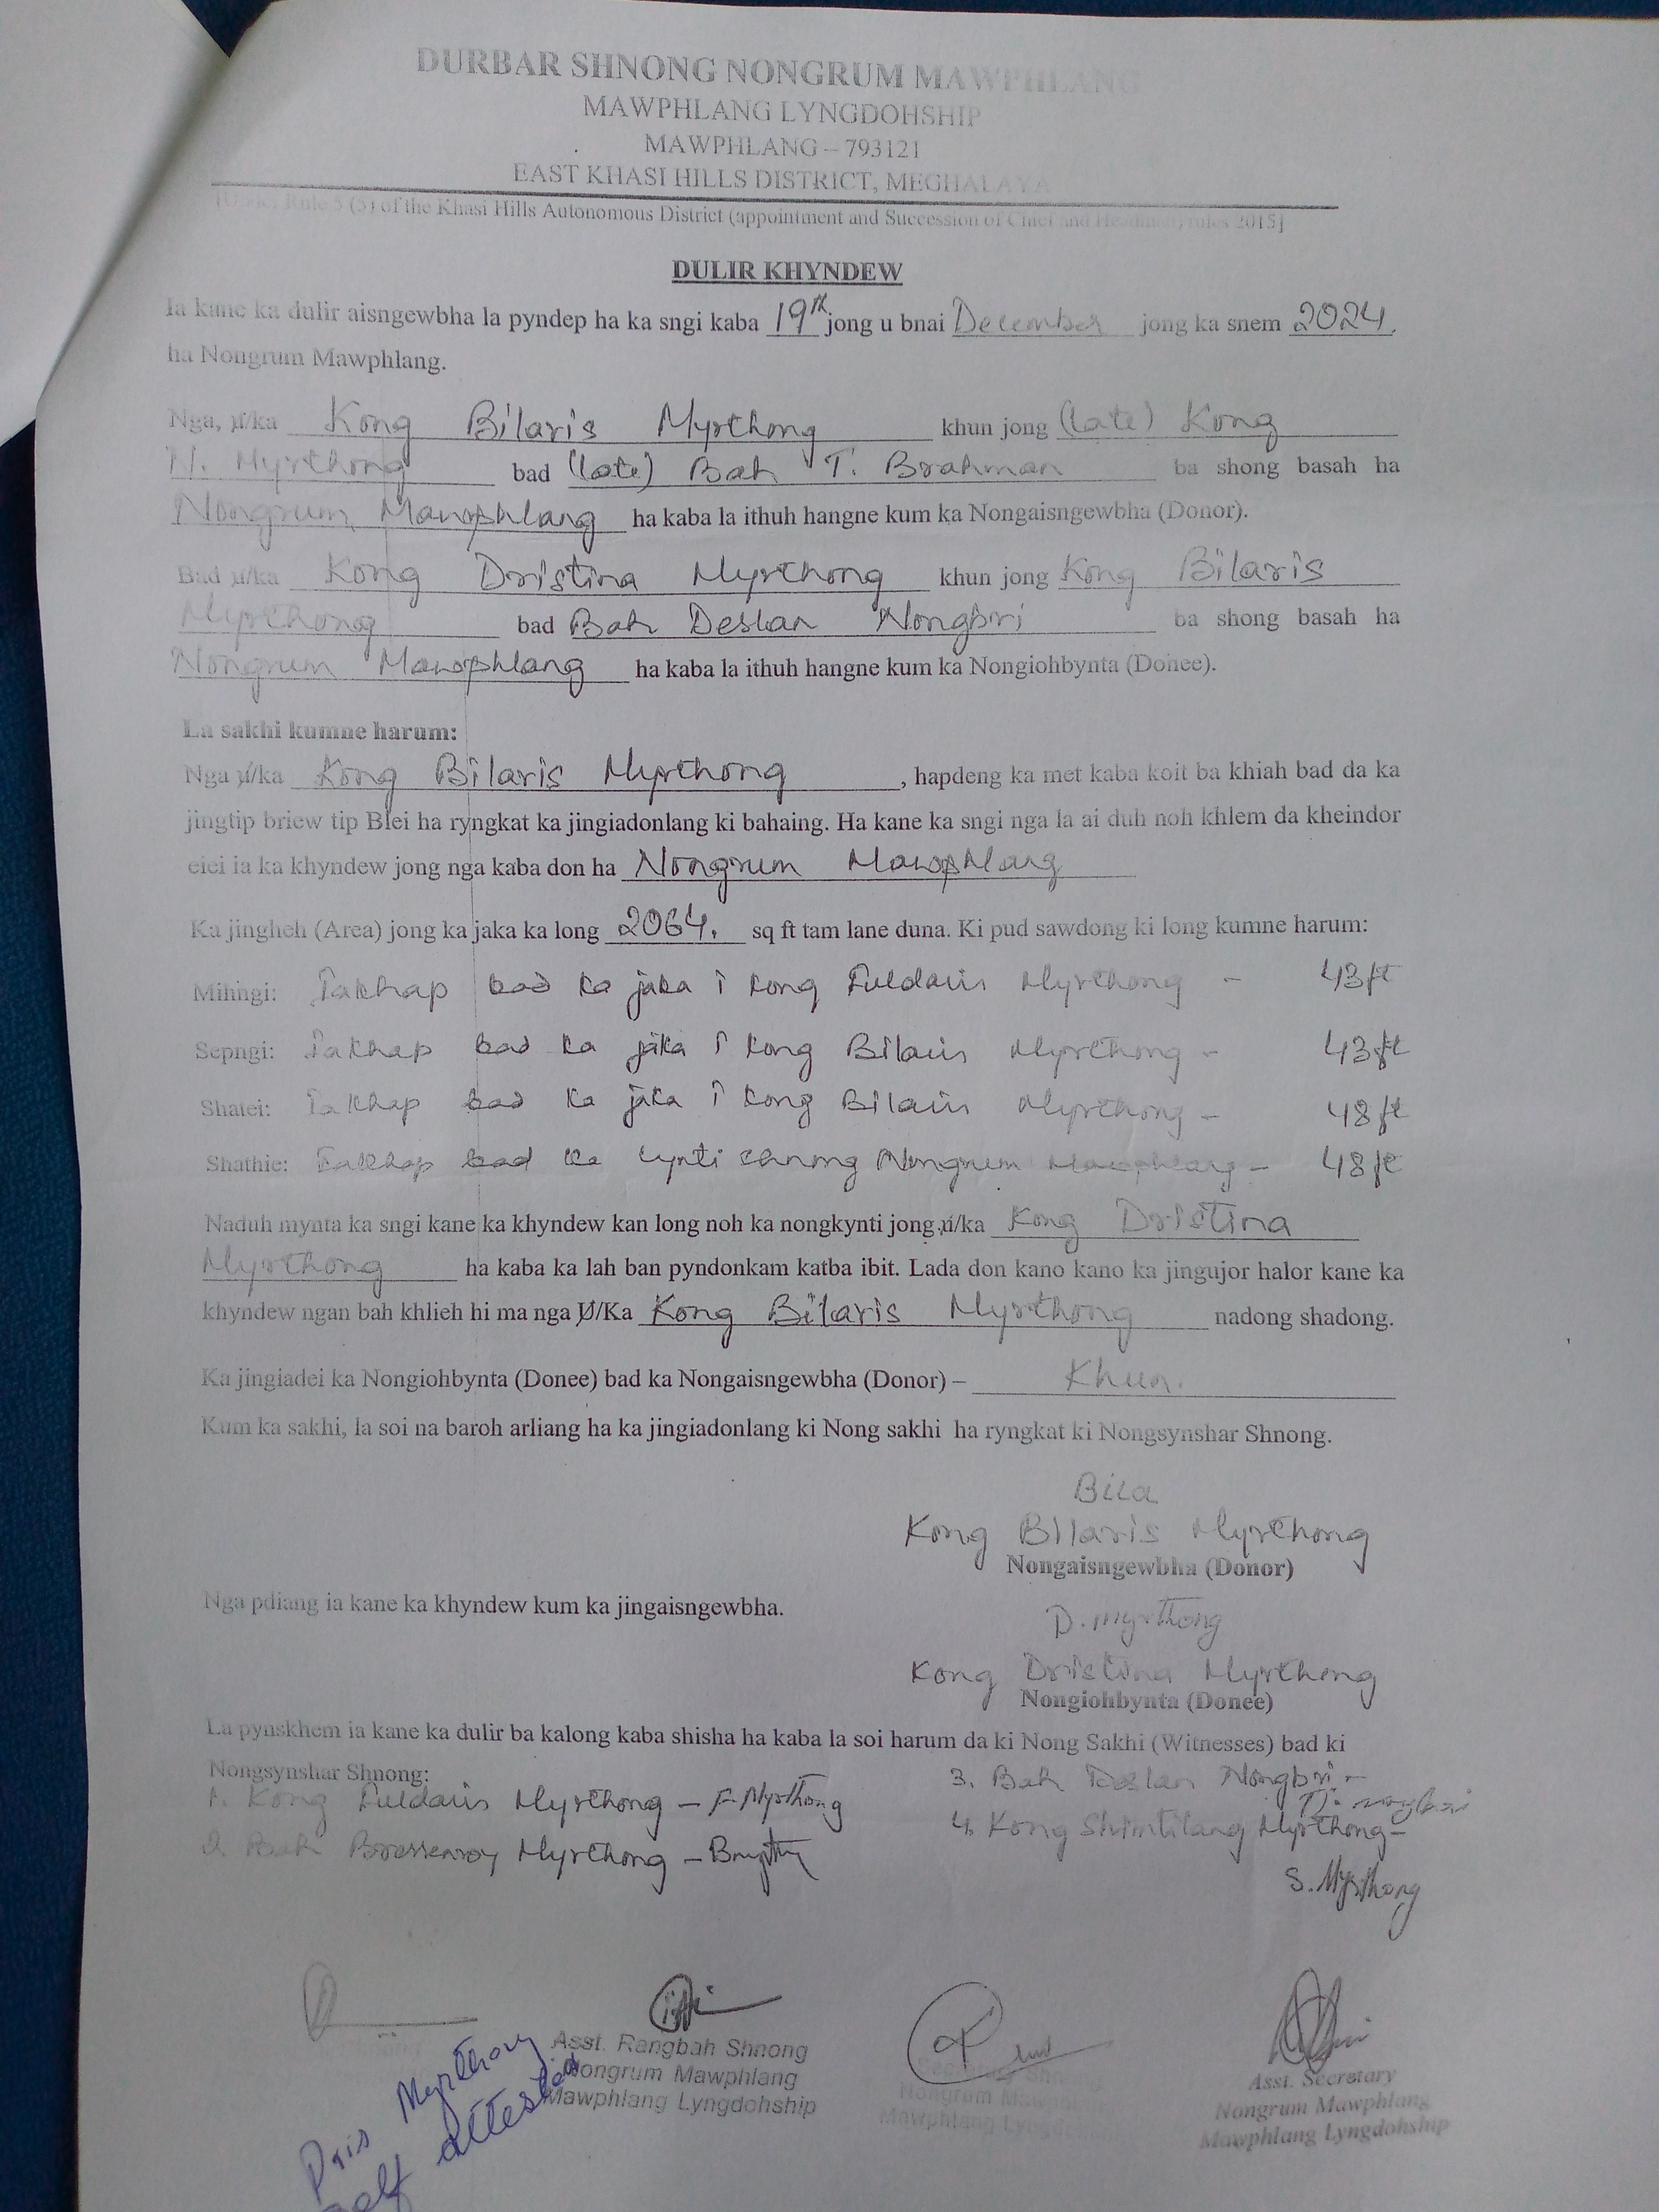 DURBAR SHNONG NONGRUM MAWPHLANG
MAWPHLANG LYNGDOHSHIP
MAWPHLANG – 793121
EAST KHASI HILLS DISTRICT, MEGHALAYA
[Under Rule 5 (5) of the Khasi Hills Autonomous District (appointment and Succession of Chief and Headman) rules 2015]
DULIR KHYNDEW
Ia kane ka dulir aisngewbha la pyndep ha ka sngi kaba 19th jong u bnai December jong ka snem 2024.
ha Nongrum Mawphlang.
Nga, u/ka Kong Bilaris Myrthong khun jong (late) Kong
N. Myrthong bad (late) Bah T. Brahman ba shong basah ha
Nongrum Mawphlang ha kaba la ithuh hangne kum ka Nongaisngewbha (Donor).
Bad u/ka Kong Dristina Myrthong khun jong Kong Bilaris
Myrthong bad Bah Deslan Nongbri ba shong basah ha
Nongrum Mawphlang ha kaba la ithuh hangne kum ka Nongiohbynta (Donee).
La sakhi kumne harum:
Nga u/ka Kong Bilaris Myrthong, hapdeng ka met kaba koit ba khiah bad da ka
jingtip briew tip Blei ha ryngkat ka jingiadonlang ki bahaing. Ha kane ka sngi nga la ai duh noh khlem da kheindor
eiei ia ka khyndew jong nga kaba don ha Nongrum Mawphlang
Ka jingheh (Area) jong ka jaka ka long 2064. sq ft tam lane duna. Ki pud sawdong ki long kumne harum:
Mihngi: Iakhap bad ka jaka i kong Fuldaris Myrthong - 43ft
Sepngi: Iakhap bad ka jaka i kong Bilaris Myrthong - 43ft
Shatei: Iakhap bad ka jaka i kong Bilaris Myrthong - 48ft
Shathie: Iakhap bad ka lynti shnong Nongrum Mawphlang - 48ft
Naduh mynta ka sngi kane ka khyndew kan long noh ka nongkynti jong u/ka Kong Dristina
Myrthong ha kaba ka lah ban pyndonkam katba ibit. Lada don kano kano ka jingujor halor kane ka
khyndew ngan bah khlieh hi ma nga U/Ka Kong Bilaris Myrthong nadong shadong.
Ka jingiadei ka Nongiohbynta (Donee) bad ka Nongaisngewbha (Donor) – Khun.
Kum ka sakhi, la soi na baroh arliang ha ka jingiadonlang ki Nong sakhi ha ryngkat ki Nongsynshar Shnong.
Bila
Kong Bilaris Myrthong
Nongaisngewbha (Donor)
Nga pdiang ia kane ka khyndew kum ka jingaisngewbha.
D. Myrthong
Kong Dristina Myrthong
Nongiohbynta (Donee)
La pynskhem ia kane ka dulir ba kalong kaba shisha ha kaba la soi harum da ki Nong Sakhi (Witnesses) bad ki
Nongsynshar Shnong:
1. Kong Fuldaris Myrthong - F. Myrthong
2. Bah Myrthong -
3. Bah Deslan Nongbri -
4. Kong Shimtilang Myrthong -
S. Myrthong
Asst. Rangbah Shnong
Nongrum Mawphlang
Mawphlang Lyngdohship
Secretary Shnong
Nongrum Mawphlang
Mawphlang Lyngdohship
Asst. Secretary
Nongrum Mawphlang
Mawphlang Lyngdohship
Dris Myrthong
self attested